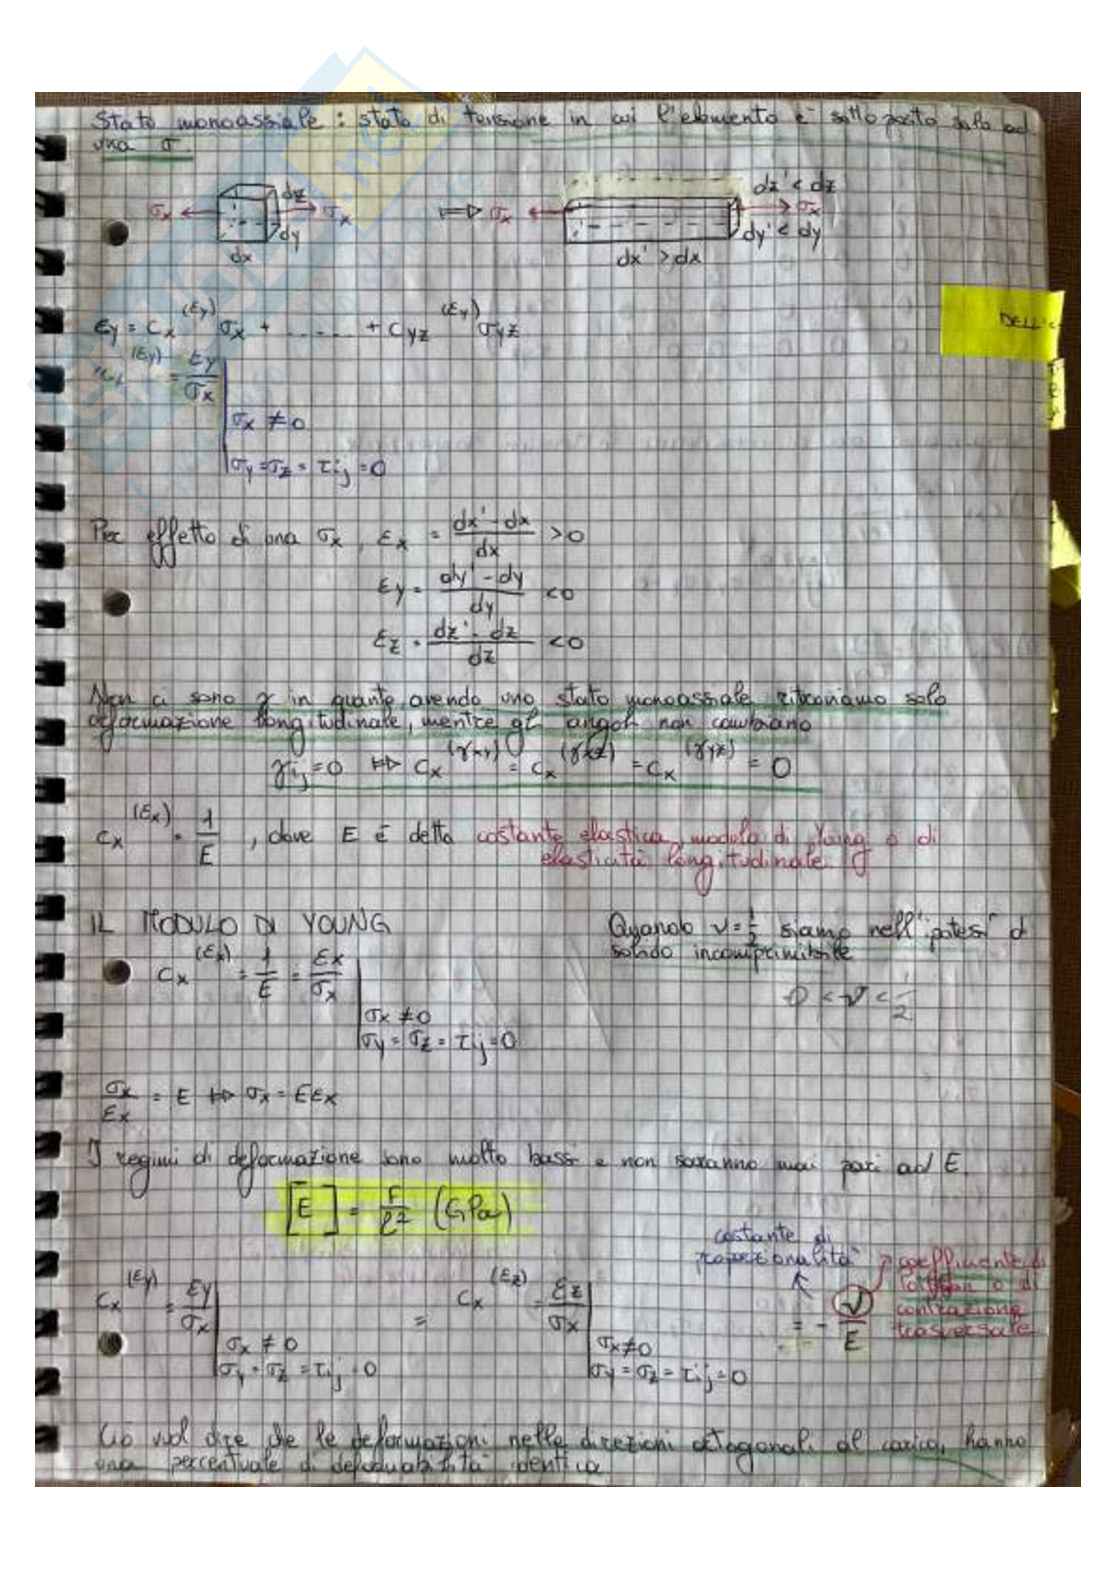 Stato monoassiale: stato di tensione in cui l'elemento è sottoposto solo ad
una σ.
σx dz σx ⇒ σx dz' < dz σx
dy dy' < dy
dx dx' > dx
εy = cx^(εy) σx + ...... + cyz^(εy) σyz
DELL'
^(εy) = εy/σx |
σx ≠ 0
σy = σz = τij = 0
Per effetto di una σx, εx = (dx' - dx)/dx > 0
εy = (dy' - dy)/dy < 0
εz = (dz' - dz)/dz < 0
Non ci sono γ in quanto, avendo uno stato monoassiale ritroviamo solo
deformazione longitudinale, mentre gli angoli non cambiano
γij = 0 ⇒ cx^(γxy) = cx^(γxz) = cx^(γyz) = 0
cx^(εx) = 1/E, dove E è detto costante elastica, modulo di Young o di
elasticità longitudinale
IL MODULO DI YOUNG
Quando ν = 1/2 siamo nell'ipotesi d
solido incomprimibile
cx^(εx) = 1/E = εx/σx |
0 < ν < 1/2
σx ≠ 0
σy = σz = τij = 0
σx/εx = E ⇒ σx = Eεx
I regimi di deformazione sono molto bassi e non saranno mai pari ad E.
[E] = F/l² (GPa)
costante di
proporzionalità
coefficiente di
o di
contrazione
trasversale
cx^(εy) = εy/σx | = cx^(εz) = εz/σx | = - ν/E
σx ≠ 0 σx ≠ 0
σy = σz = τij = 0 σy = σz = τij = 0
Ciò vuol dire che le deformazioni nelle direzioni ortogonali al carico, hanno
una percentuale di identica